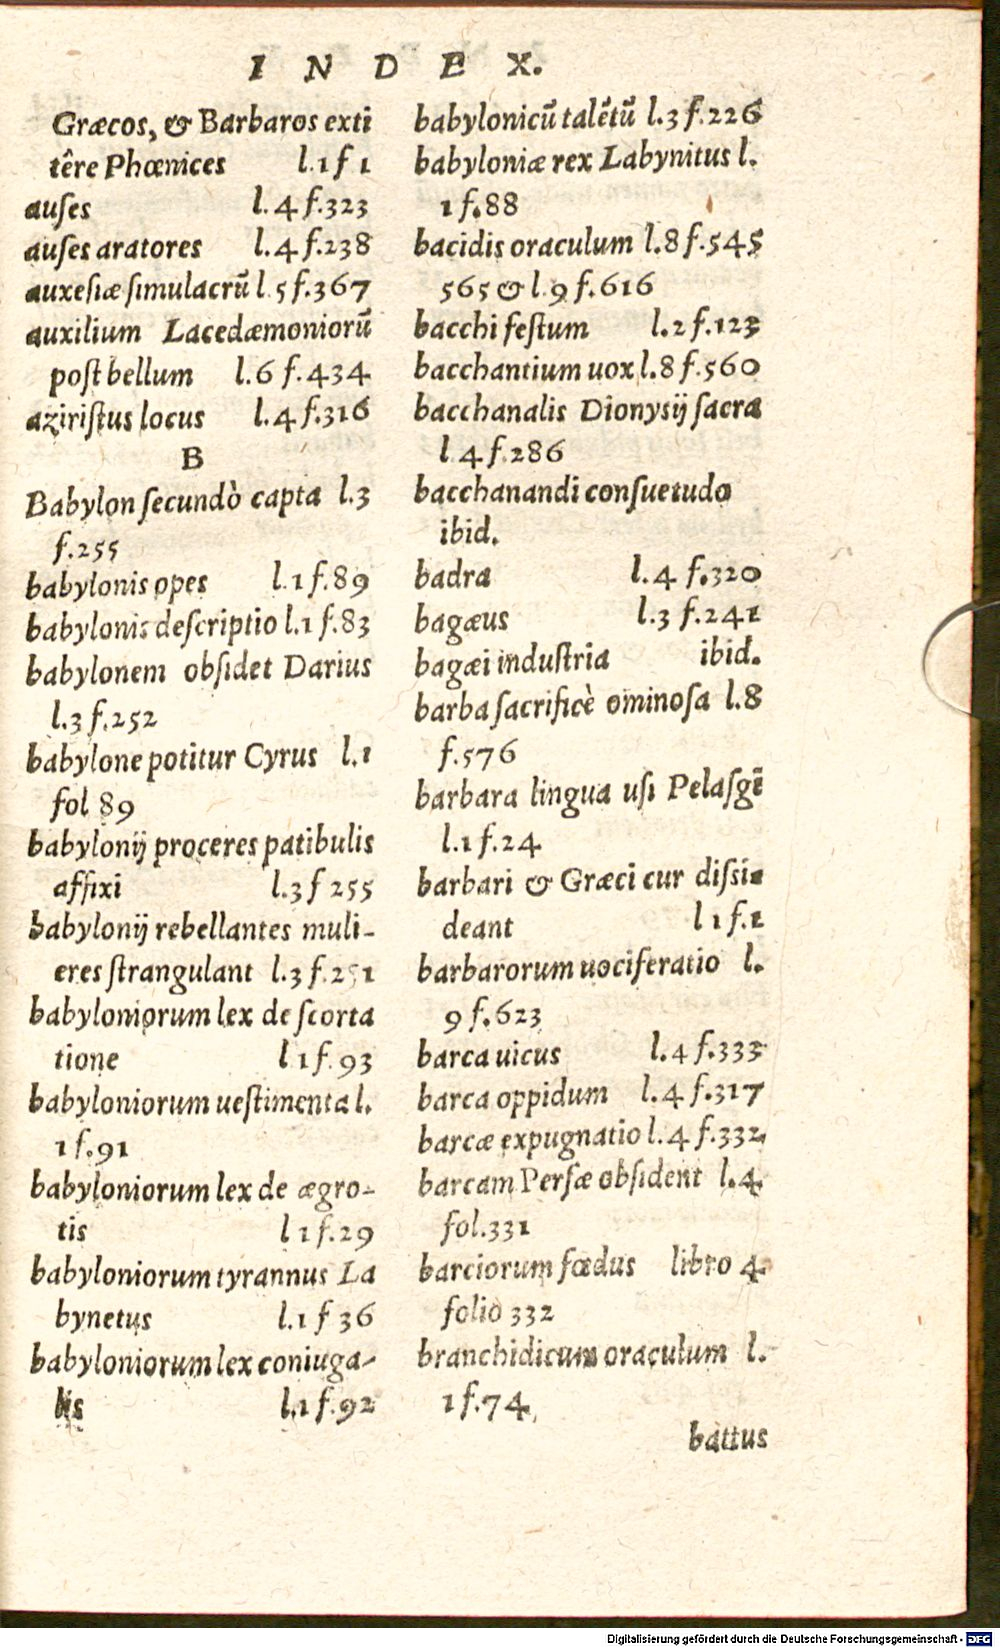 INDEX.
Græcos, & Barbaros exti
têre Phœnices l.1 f 1
auſes l.4 f.323
auſes aratores l.4 f.238
auxeſiæ ſimulacrũ l.5 f.367
auxilium Lacedæmoniorũ
poſt bellum l.6 f.434
aziriſtus locus l.4 f.316
B
Babylon ſecundò capta l.3
f.255
babylonis opes l.1 f.89
babylonis deſcriptio l.1 f.83
babylonem obſidet Darius
l.3 f.252
babylone potitur Cyrus l.1
fol 89
babylonij proceres patibulis
affixi l.3 f 255
babylonij rebellantes muli-
eres ſtrangulant l.3 f.251
babyloniorum lex de ſcorta
tione l 1 f.93
babyloniorum ueſtimenta l.
1 f.91
babyloniorum lex de ægro-
tis l 1 f.29
babyloniorum tyrannus La
bynetus l.1 f 36
babyloniorum lex coniuga-
lis l.1 f.92
babylonicũ talẽtũ l.3 f.226
babyloniæ rex Labynitus l.
1 f.88
bacidis oraculum l.8 f.545
565 & l 9 f.616
bacchi feſtum l.2 f.123
bacchantium uox l.8 f.560
bacchanalis Dionyſij ſacra
l 4 f.286
bacchanandi conſuetudo
ibid.
badra l.4 f.320
bagæus l.3 f.241
bagæi induſtria ibid.
barba ſacrificè ominoſa l.8
f.576
barbara lingua uſi Pelaſgĩ
l.1 f.24
barbari & Græci cur diſsi-
deant l 1 f.1
barbarorum uociferatio l.
9 f.623
barca uicus l.4 f.333
barca oppidum l.4 f.317
barcæ expugnatio l.4 f.332
barcam Perſæ obſident l.4
fol.331
barciorum fœdus libro 4
folio 332
branchidicum oraculum l.
1 f.74
battus
Digitalisierung gefördert durch die Deutsche Forschungsgemeinschaft - DFG